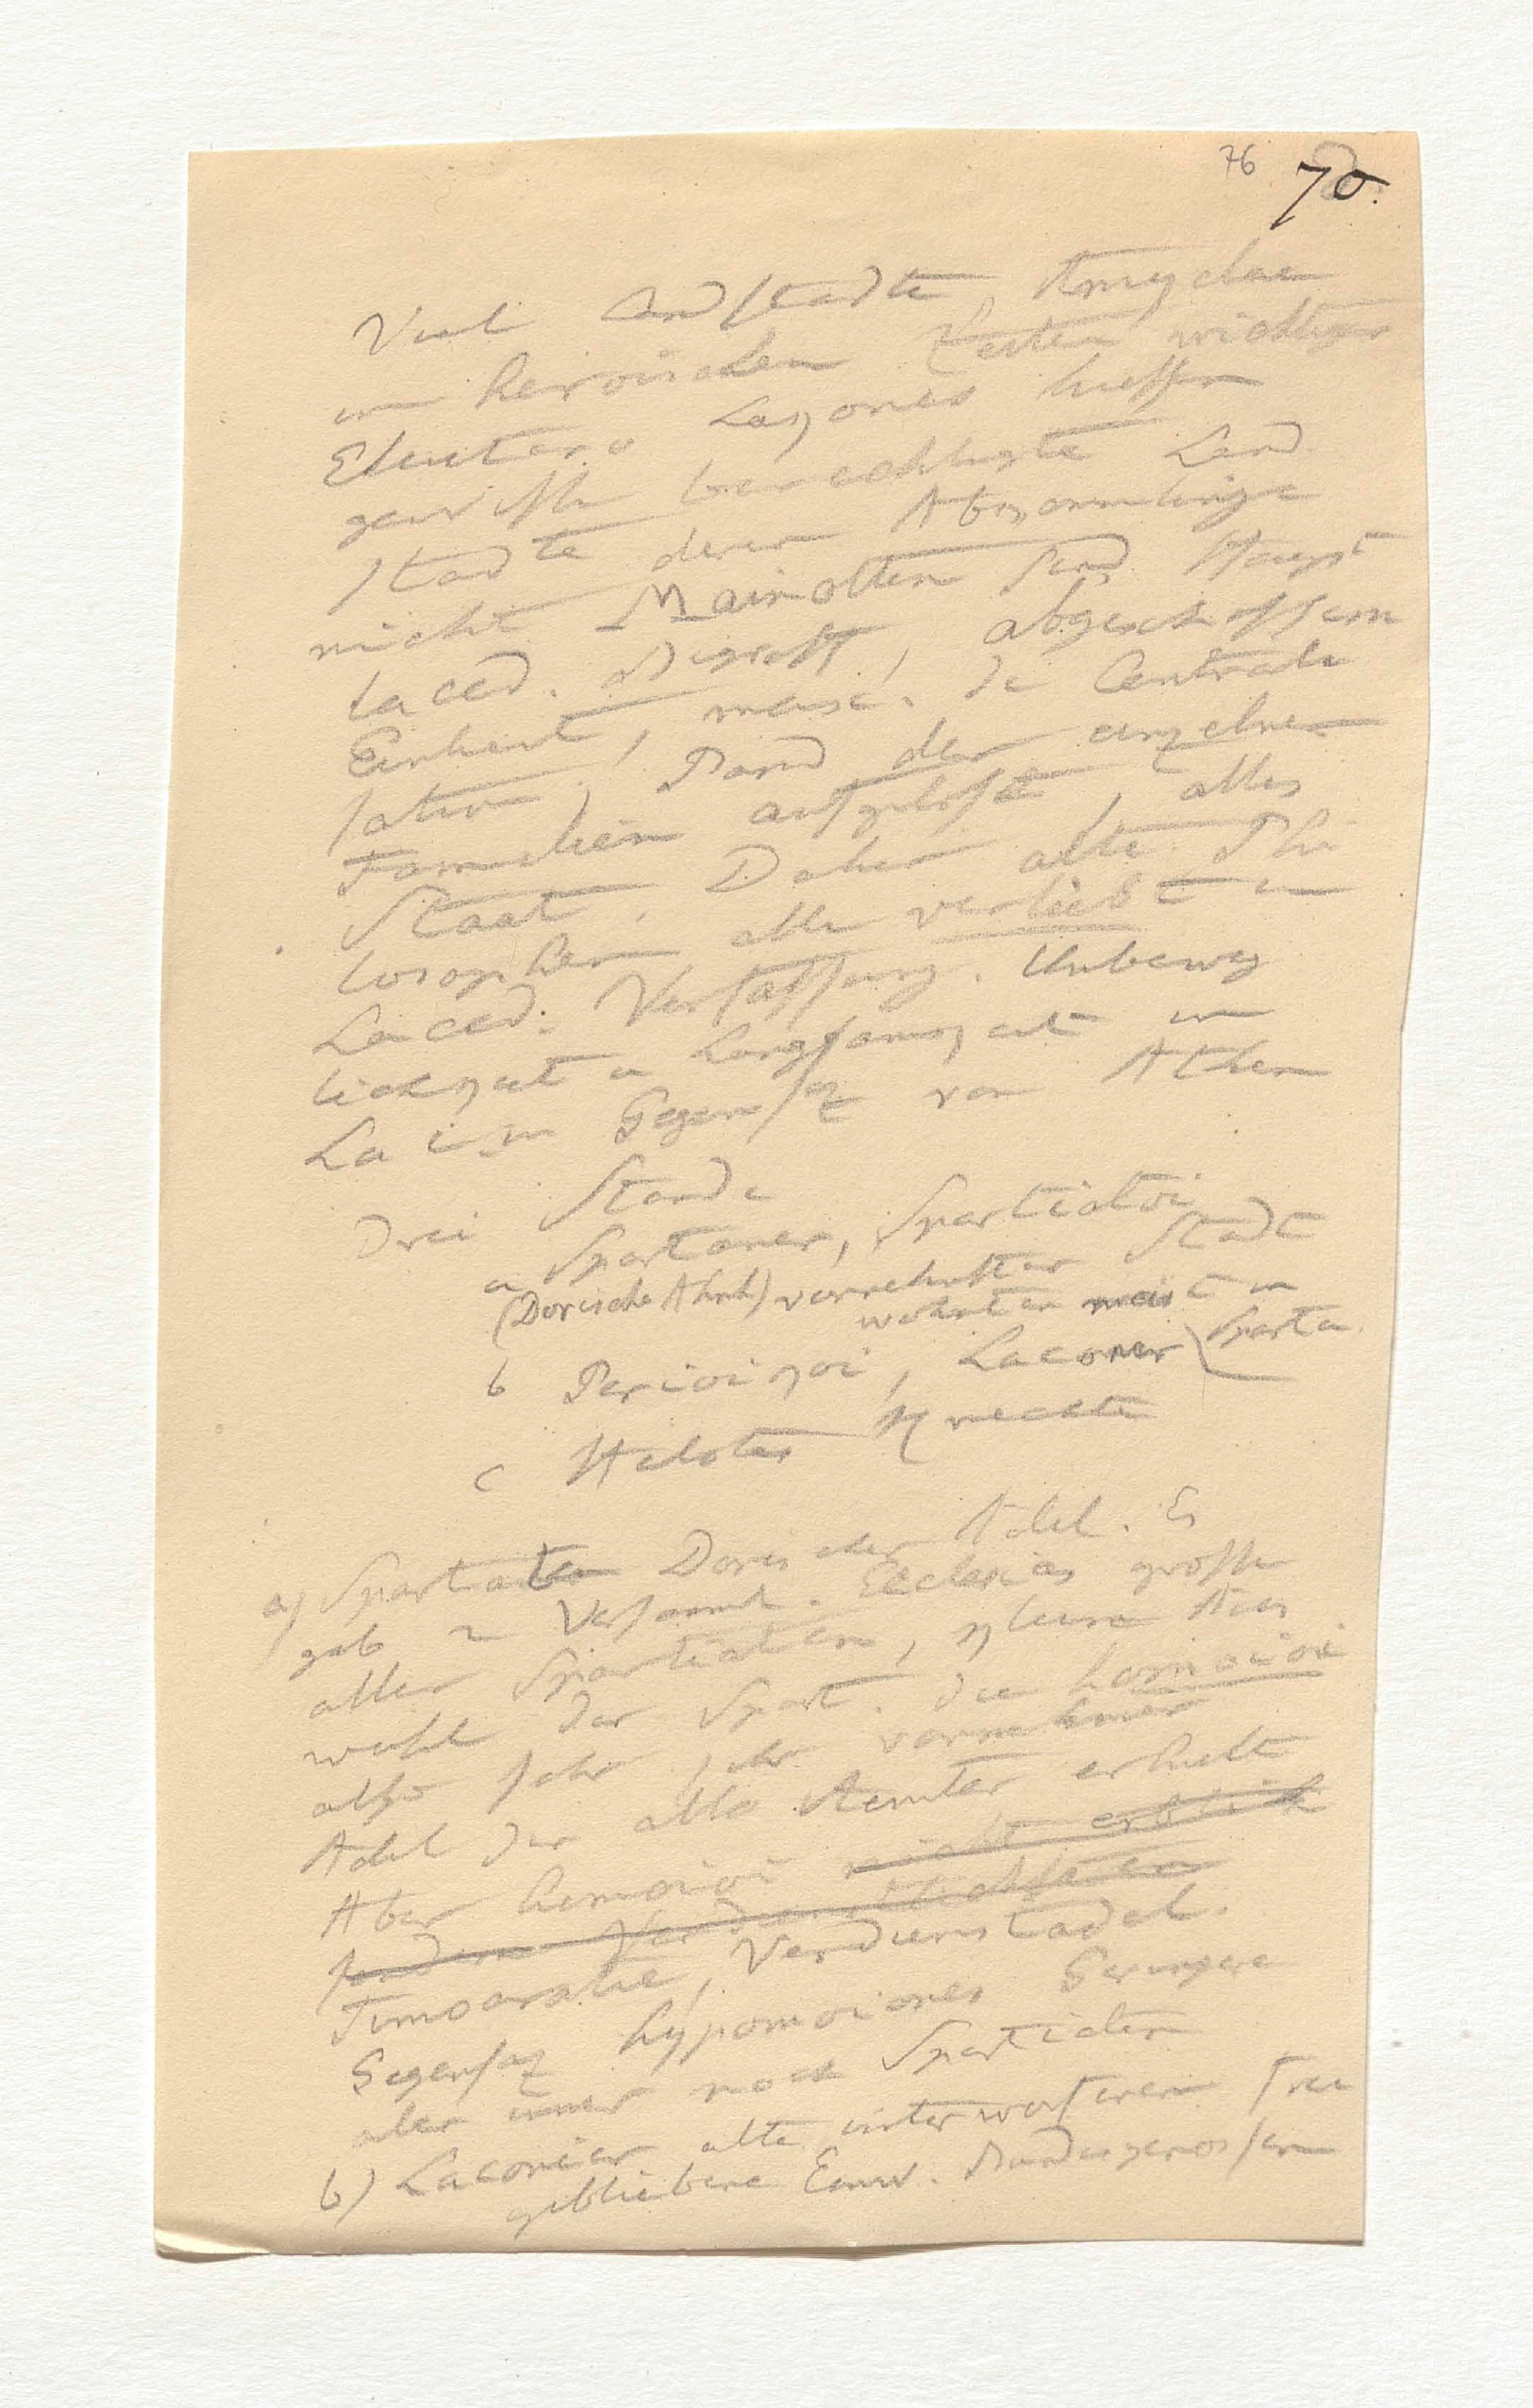 76 70.
Viel Landstädte, Amyclae
in heroischen Zeiten wichtiger
Eleutero Lakones hiessen
gewisse berechtigte Land
städte deren Abkömmlinge
nicht Mainotten sind. Haupt
laced. Digest, abgeschlossene
Einheit, mehr. die Centrali
sation, Band der einzelnen
Familien aufgelöst, alles
Staat. Daher alte Phi
losophen alle verliebt in
Laced. Verfassung. Unbeweg
lichkeit u Langsamkeit in
La im Gegensaz von Athen
Drei Stände
a Spartaner, Spartiatoi
(Dorische Abth) vornehmster Stadt
wohnten meist in
Sparta.
b Perioikoi, Laconer
c Helotes Knechte
a) Spartiaten Dorischer Adel. Es
gab 2 Versamml. Ecclesias grosse
aller Spartiaten, kleine Aus
wahl der Spart. die homoioi
also sehr sehr vornehmer
Adel der alle Aemter erhielt
Aber homoioi nicht erblich
sondern Verdienst
Timocratie, Verdienstadel.
Gegensaz hypomoiones Geringere
aber immer noch Spartiaten
b) Laconier alte unterworfenen treu
gebliebene Einw. Bundesgenossen